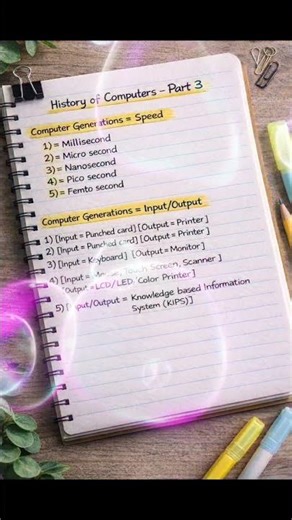 History of Computers - Part 3
Computer Generations = Speed
1) = Millisecond
2) = Micro second
3) = Nanosecond
4) = Pico second
5) = Femto second
Computer Generations = Input/Output
1) [Input = Punched card] [Output = Printer]
2) [Input = Punched card] [Output = Printer]
3) [Input = Keyboard] [Output = Monitor]
4) [Input = Mouse, Touch Screen, Scanner]
[Output = LCD/LED, Color Printer]
5) [Input/Output = Knowledge based Information
System (KIPS)]